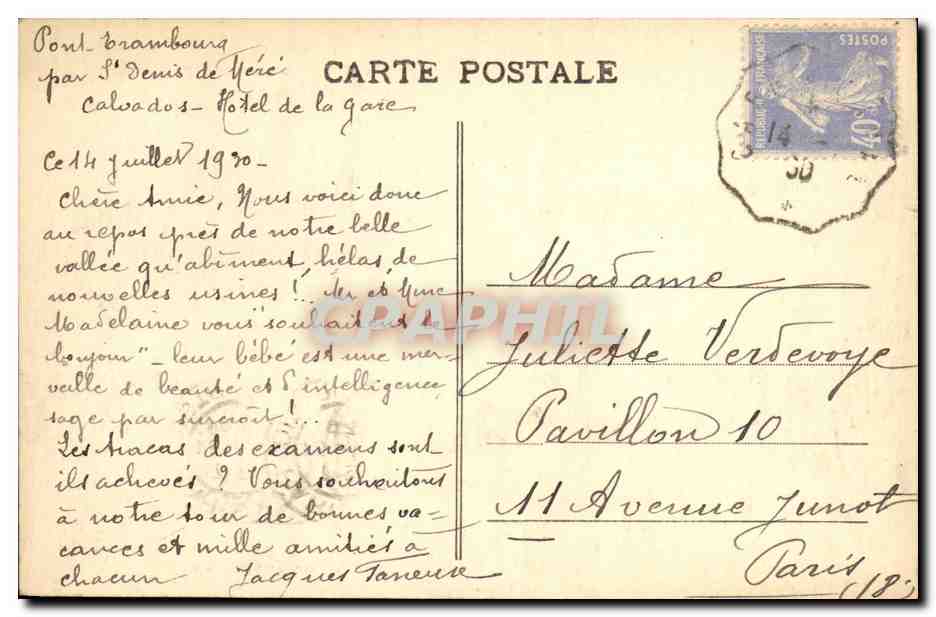 Pont-Erambourg
par St Denis de Méré
Calvados - Hôtel de la gare
CARTE POSTALE
Ce 14 Juillet 1930 -
Chère Amie, Nous voici donc
au repos près de notre belle
vallée qu'abîment, hélas, de
nouvelles usines !.. Mr et Mme
Madelaine vous "souhaitent le
bonjour" - leur bébé est une mer-
veille de beauté et d'intelligence
sage par surcroît !...
Les tracas des examens sont
ils achevés ? Vous souhaitons
à notre tour de bonnes va-
cances et mille amitiés à
chacun Jacques
REPUBLIQUE FRANÇAISE
POSTES
40c
14
30
Madame
Juliette Verdevoye
Pavillon 10
11 Avenue Junot
Paris
(18)
CRAPHIL